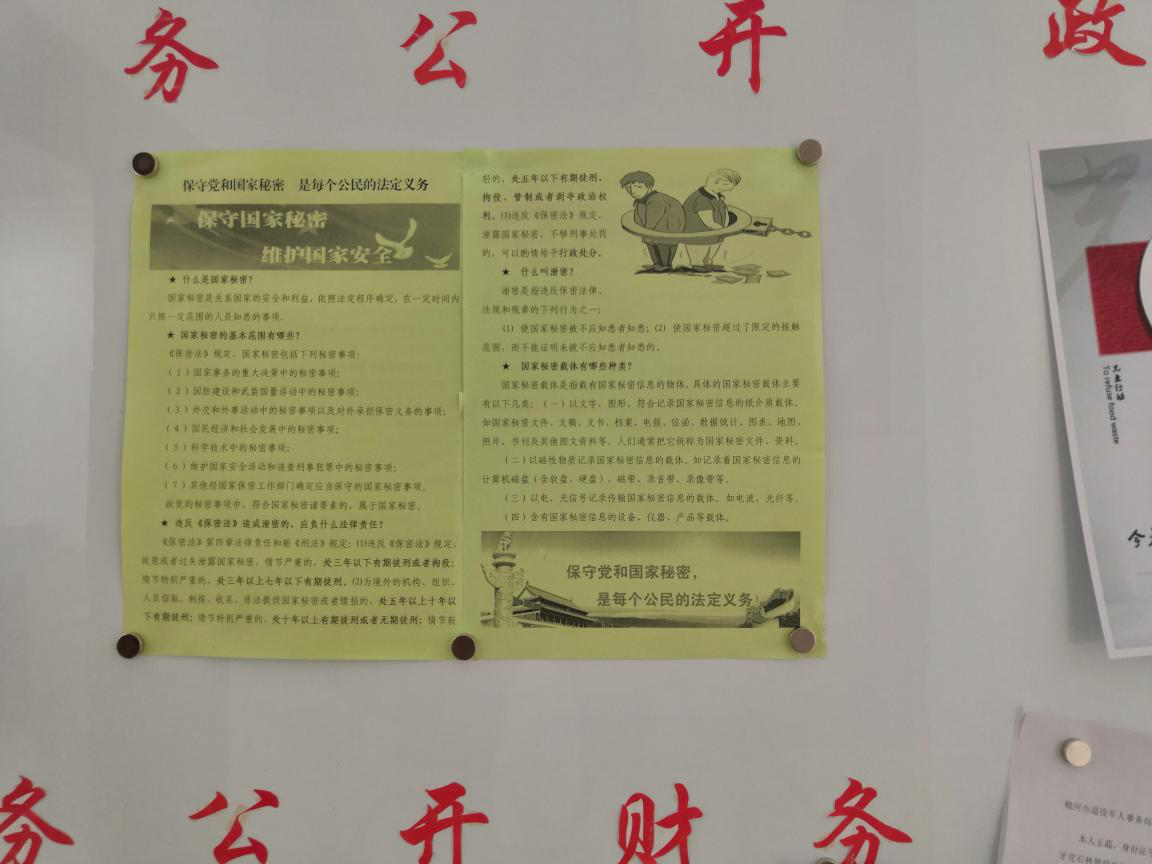 务公开 政
保守党和国家秘密 是每个公民的法定义务
保守国家秘密
维护国家安全
★ 什么是国家秘密?
国家秘密是关系国家的安全和利益,依照法定程序确定,在一定时间内
只限一定范围的人员知悉的事项.
★ 国家秘密的基本范围有哪些?
《保密法》规定,国家秘密包括下列秘密事项:
(1)国家事务的重大决策中的秘密事项;
(2)国防建设和武装国量活动中的秘密事项;
(3)外交和外事活动中的秘密事项以及对外承担保密义务的事项;
(4)国民经济和社会发展中的秘密事项;
(5)科学技术中的秘密事项;
(6)维护国家安全活动和追查刑事犯罪中的秘密事项;
(7)其他经国家保密工作部门确定应当保守的国家秘密事项。
政党的秘密事项中,符合国家秘密诸要素的,属于国家秘密。
★ 违反《保密法》造成泄密的,应负什么法律责任?
《保密法》第四章法律责任和新《刑法》规定:⑴违反《保密法》规定,
故意或者过失泄露国家秘密,情节严重的,处三年以下有期徒刑或者拘役;
情节特别严重的,处三年以上七年以下有期徒刑。⑵为境外的机构、组织、
人员窃取、刺探、收买、非法提供国家秘密或者情报的,处五年以上十年以
下有期徒刑;情节特别严重的,处十年以上有期徒刑或者无期徒刑;情节较
轻的,处五年以下有期徒刑、
拘役、管制或者剥夺政治权
利。⑶违反《保密法》规定,
泄露国家秘密,不够刑事处罚
的,可以酌情给予行政处分。
★ 什么叫泄密?
泄密是指违反保密法律、
法规和规章的下列行为之一:
(1) 使国家秘密被不应知悉者知悉;(2) 使国家秘密超过了限定的接触
范围,而不能证明未被不应知悉者知悉的。
★ 国家秘密载体有哪些种类?
国家秘密载体是指载有国家秘密信息的物体。具体的国家秘密载体主要
有以下几类:(一)以文字、图形、符合记录国家秘密信息的纸介质载体。
如国家秘密文件、文稿、文书、档案、电报、信函、数据统计、图表、地图、
照片、书刊及其他图文资料等。人们通常把它统称为国家秘密文件、资料。
(二)以磁性物质记录国家秘密信息的载体。如记录着国家秘密信息的
计算机磁盘(含软盘、硬盘)、磁带、录音带、录像带等。
(三)以电、光信号记录传输国家秘密信息的载体。如电波、光纤等。
(四)含有国家秘密信息的设备、仪器、产品等载体。
保守党和国家秘密,
是每个公民的法定义务!
To refuse food waste
今
根河市退役军人事务局
本人王磊,身份证
务公开 财务